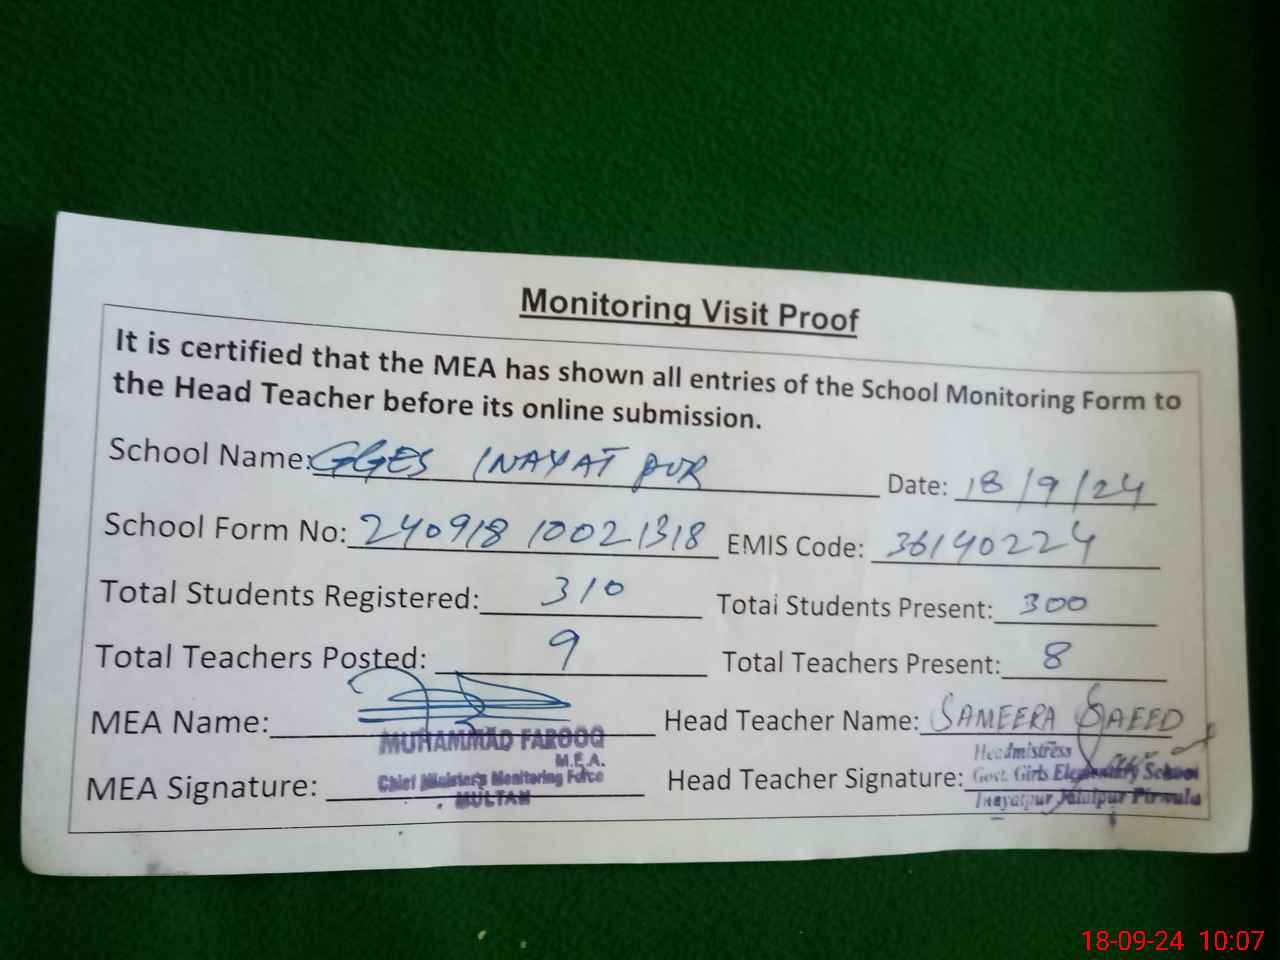 Monitoring Visit Proof
It is certified that the MEA has shown all entries of the School Monitoring Form to
the Head Teacher before its online submission.
School Name: GGES INAYAT PUR Date: 18/9/24
School Form No: 240918 10021318 EMIS Code: 36140224
Total Students Registered: 310 Total Students Present: 300
Total Teachers Posted: 9 Total Teachers Present: 8
MEA Name: Head Teacher Name: SAMEERA SAEED
MUHAMMAD FAROOQ
M.E.A.
Chief Minister's Monitoring Force
MULTAN
MEA Signature: Head Teacher Signature:
Headmistress
Govt. Girls Elementary School
Inayatpur Jalalpur Pirwala
18-09-24 10:07